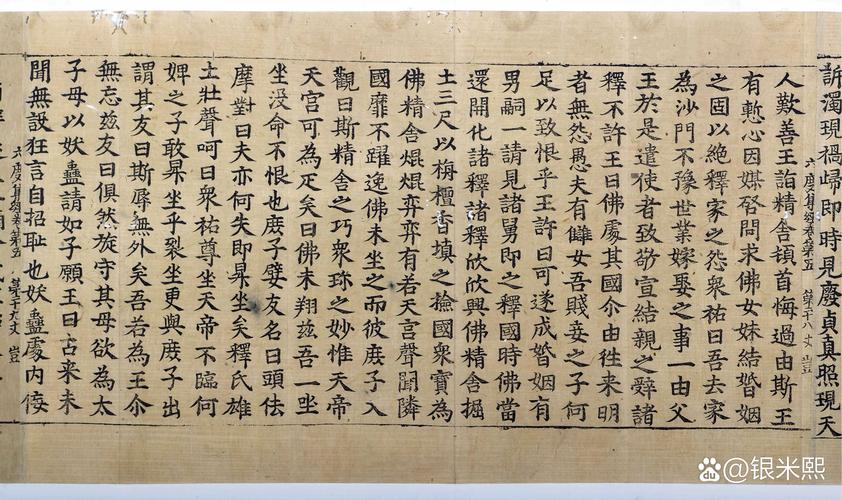 訴濁現禍歸即時見廢貞真照現天
六度集經卷第五 第十八丈 豈
人歎善王詣精舍頓首悔過由斯王
有慙心因媒啓問求佛女妹結婚姻
之固以絶釋家之怨衆祐曰吾去家
為沙門不豫世業嫁娶之事一由父
王於是遣使者致敬宣結親之辤諸
釋不許王曰佛處其國尒由徃来明
者無怨愚夫有讎女吾賤妾之子何
足以致恨乎王許曰可遂成婚姻有
男嗣一請見諸舅即之釋國時佛當
還開化諸釋諸釋欣欣興佛精舍掘
土三尺以栴檀香填之撿國衆寶為
佛精舍焜焜弈弈有若天宫聲聞隣
國靡不躍逸佛未坐之而彼庶子入
觀曰斯精舍之巧衆珎之妙惟天帝
天官可為疋矣曰佛未翔兹吾一坐
坐没命不恨也庶子嬖友名曰頭佉
摩對曰夫亦何失即昇坐矣釋氏雄
立壯聲呵曰衆祐尊坐天帝不臨何
婢之子敢昇坐乎裂坐更與庶子出
謂其友曰斯辱無外矣吾若為王尒
無忘兹友曰俱然旋守其母欲為太
子母以妖蠱請如子願王曰古来未
聞無設狂言自招耻也妖蠱處内佞
六度集經卷第五 第十九丈 豈
Bai du @银米熙